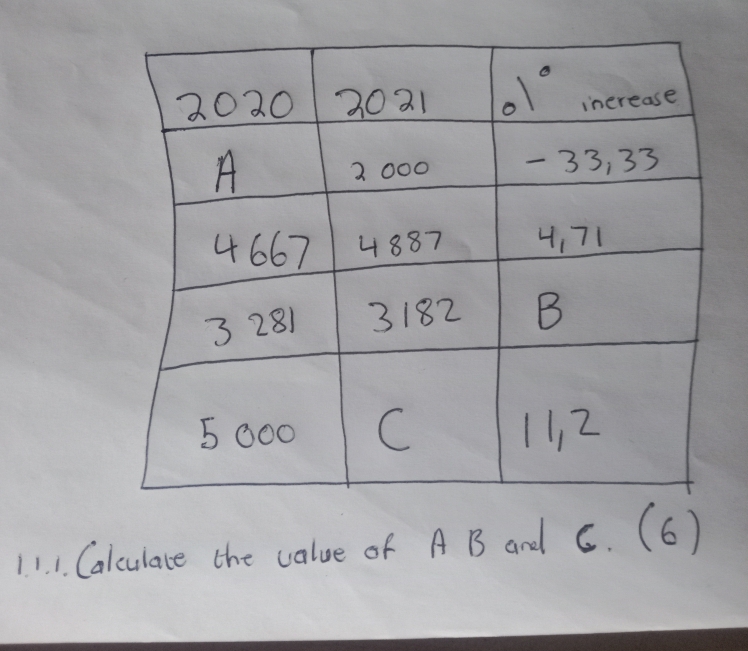 2020 2021 % increase
A 2 000 - 33,33
4 667 4 887 4,71
3 281 3 182 B
5 000 C 11,2
1.1.1. Calculate the value of A B and C. (6)